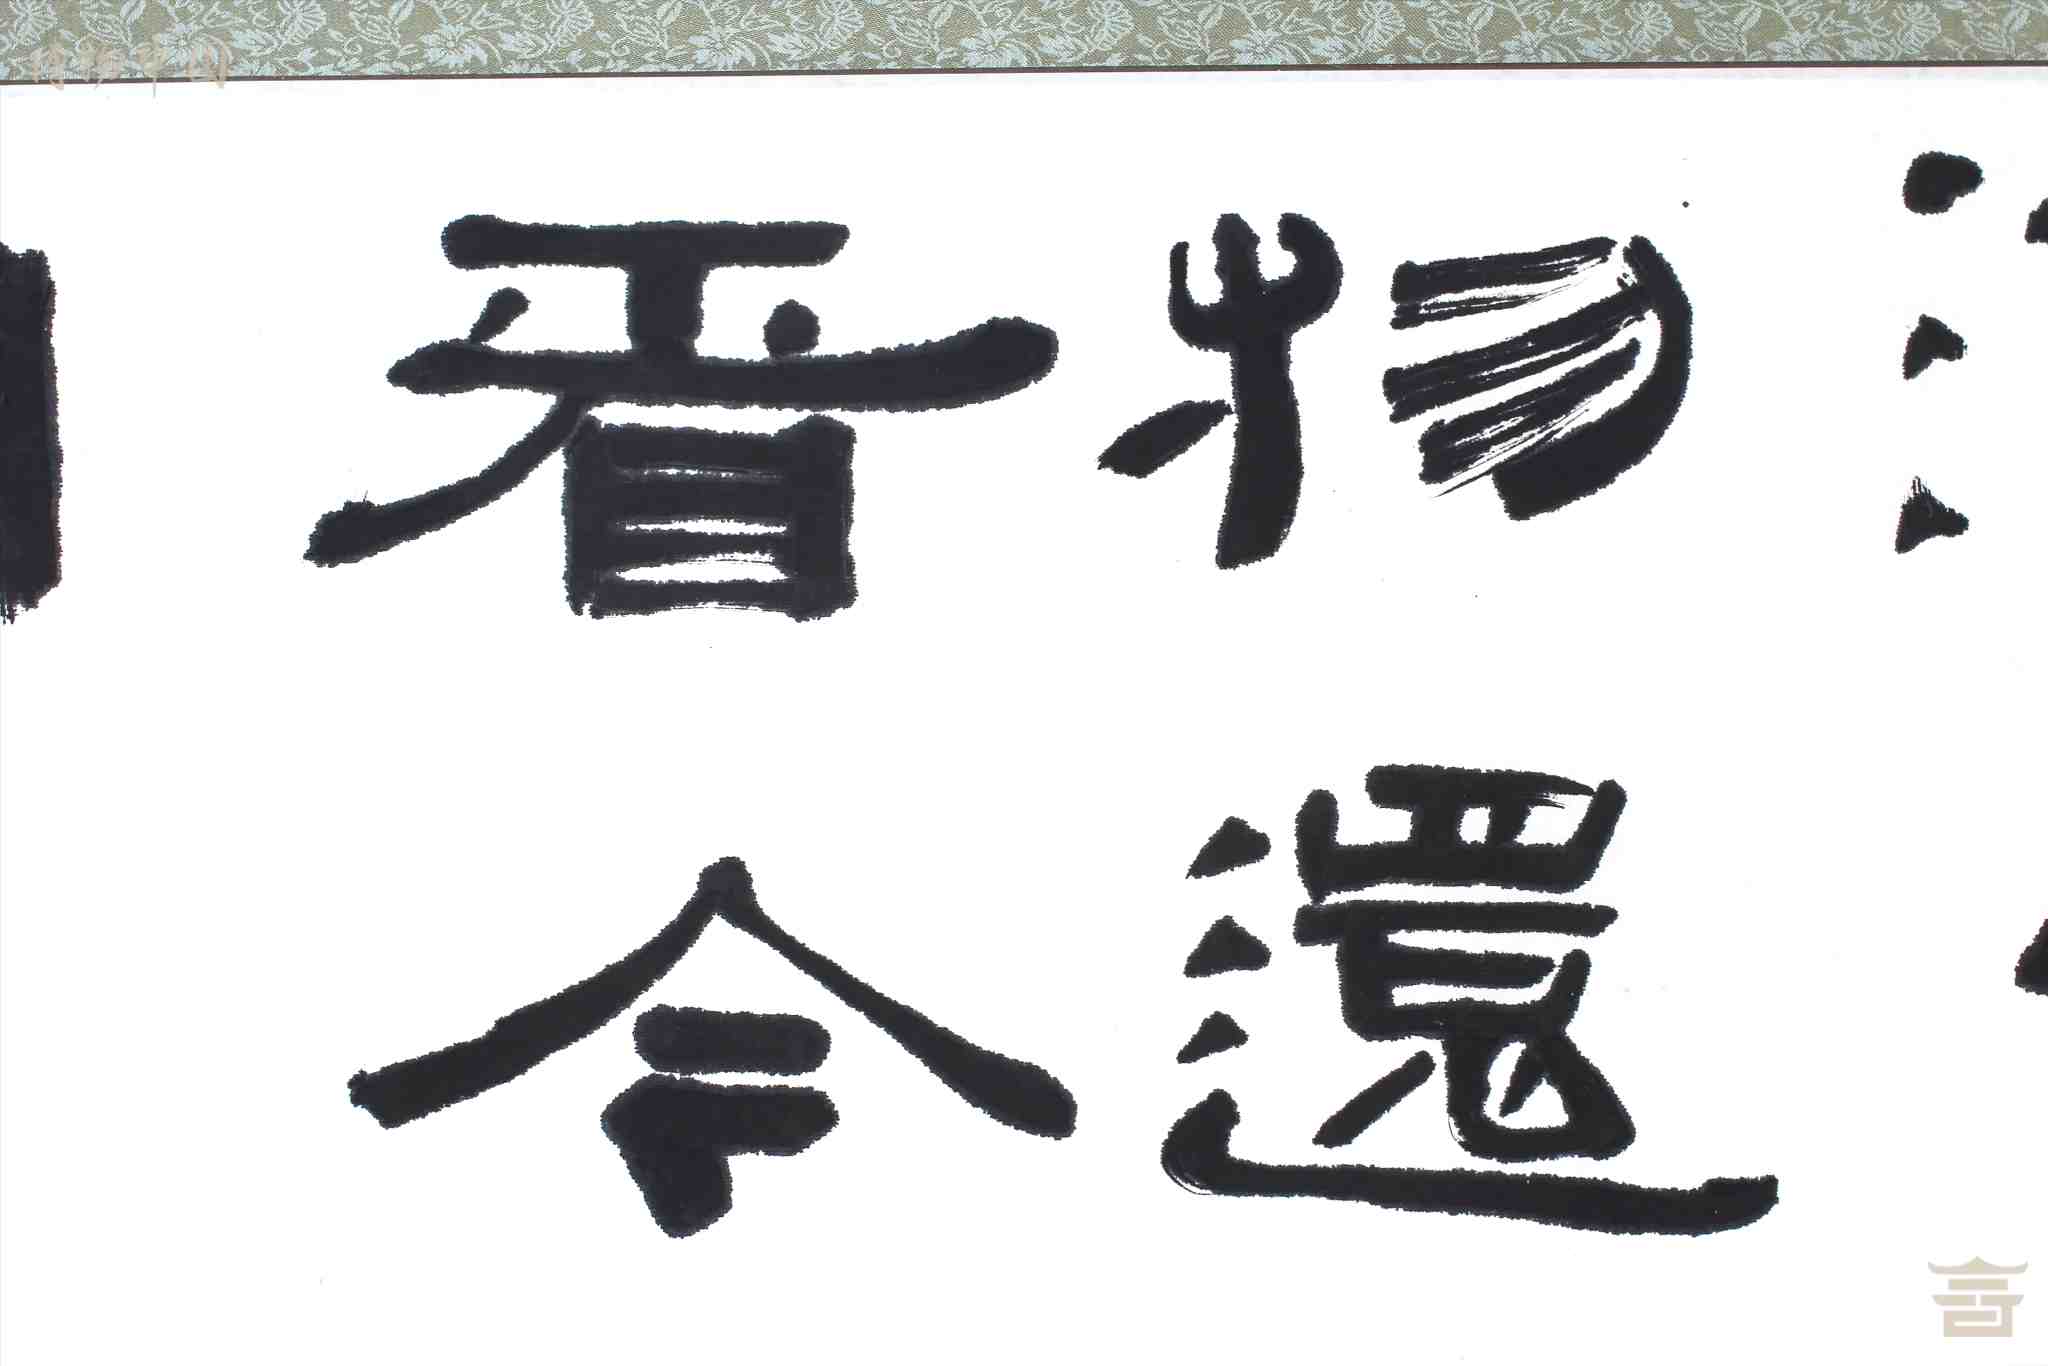 物還
看今